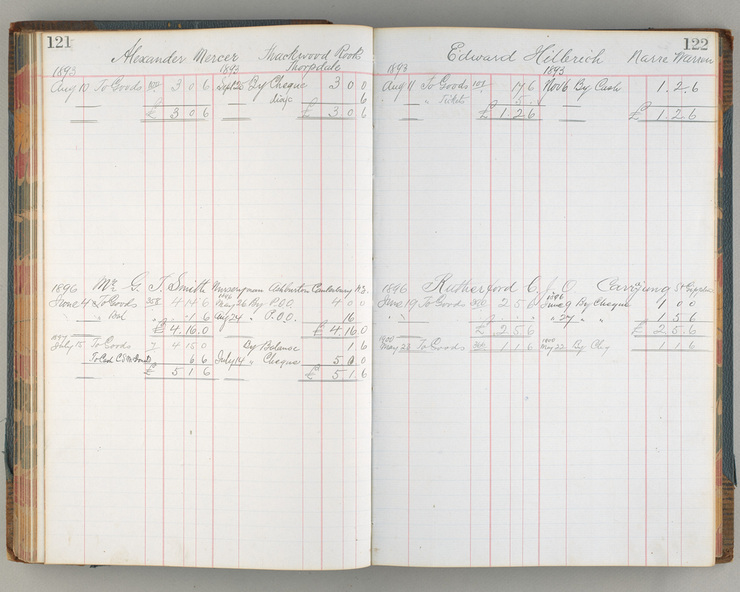 121
Alexander Mercer Thorpdale
1893 1893
Aug 10 To Goods 3 0 6 Sept 26 By Cheque 3 0 0
6
£ 3 0 6 £ 3 0 6
1896 Mr G. T. Smith Nurseryman Ashburton Canterbury N.Z.
June 4 To Goods 4 14 6 May 26 By P.O.O. 4 0 0
" 1 6 Aug 24 " P.O.O. 16
£ 4 16 0 £ 4 16 0
1897
July 15 To Goods 7 4 15 0 By Balance 1 6
6 6 July 14 " Cheque 5 0 0
£ 5 1 6 £ 5 1 6
122
Edward Hilbrich Narre Warren
1893 1893
Aug 11 To Goods 107 17 6 Nov 6 By Cash 1 2 6
" 5
£ 1 2 6 £ 1 2 6
1896 Rutherford C. J. O
June 19 To Goods 2 5 6 June 9 By Cheque 1 0 0
" " " 27 " " 1 5 6
£ 2 5 6 £ 2 5 6
1900 1900
May 23 To Goods 1 1 6 May 22 By Chq 1 1 6